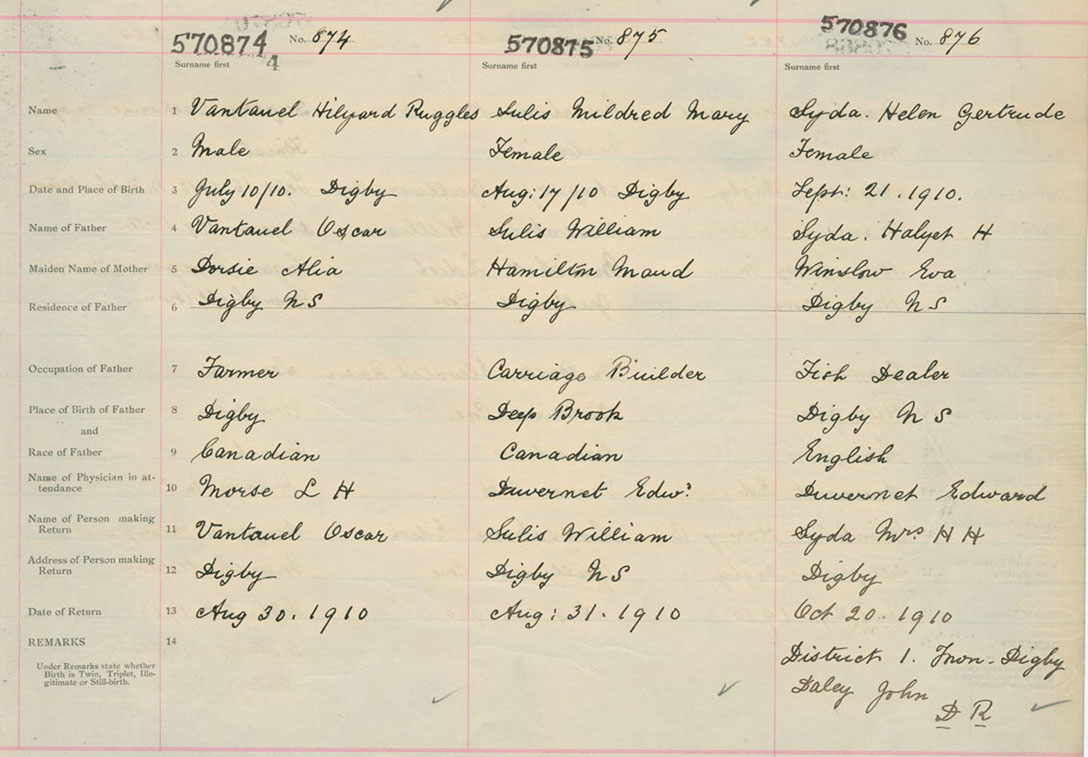 570874 No. 874 570875 No. 875 570876 No. 876
4
Surname first Surname first Surname first
Name 1 Vantauel Hilyard Ruggles Sulis Mildred Mary Syda. Helen Gertrude
Sex 2 Male Female Female
Date and Place of Birth 3 July 10/10. Digby Aug: 17/10 Digby Sept: 21. 1910.
Name of Father 4 Vantauel Oscar Sulis William Syda. Halyet H
Maiden Name of Mother 5 Dorsie Alia Hamilton Maud Winslow Eva
Residence of Father 6 Digby N S Digby Digby N S
Occupation of Father 7 Farmer Carriage Builder Fish Dealer
Place of Birth of Father 8 Digby Deep Brook Digby N S
and
Race of Father 9 Canadian Canadian English
Name of Physician in at-
tendance 10 Morse L H Duvernet Edwd: Duvernet Edward
Name of Person making
Return 11 Vantauel Oscar Sulis William Syda Mrs H H
Address of Person making
Return 12 Digby Digby N S Digby
Date of Return 13 Aug 30. 1910 Aug: 31. 1910 Oct 20. 1910
REMARKS 14
Under Remarks state whether
Birth is Twin, Triplet, Ille-
gitimate or Still-birth.
District 1. Town-Digby
Daley John
D R